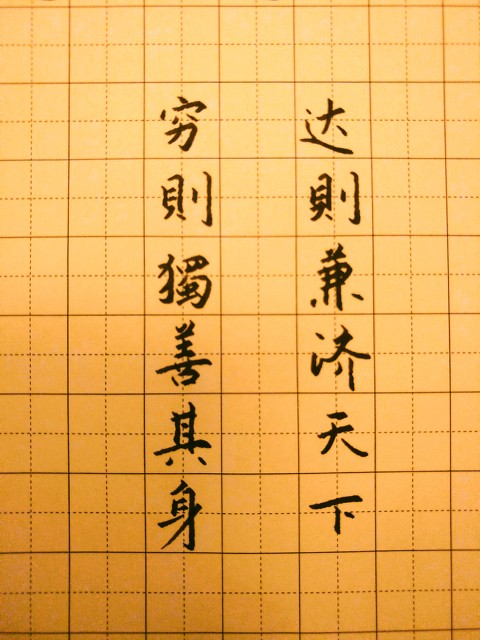 达則兼济天下
穷則獨善其身